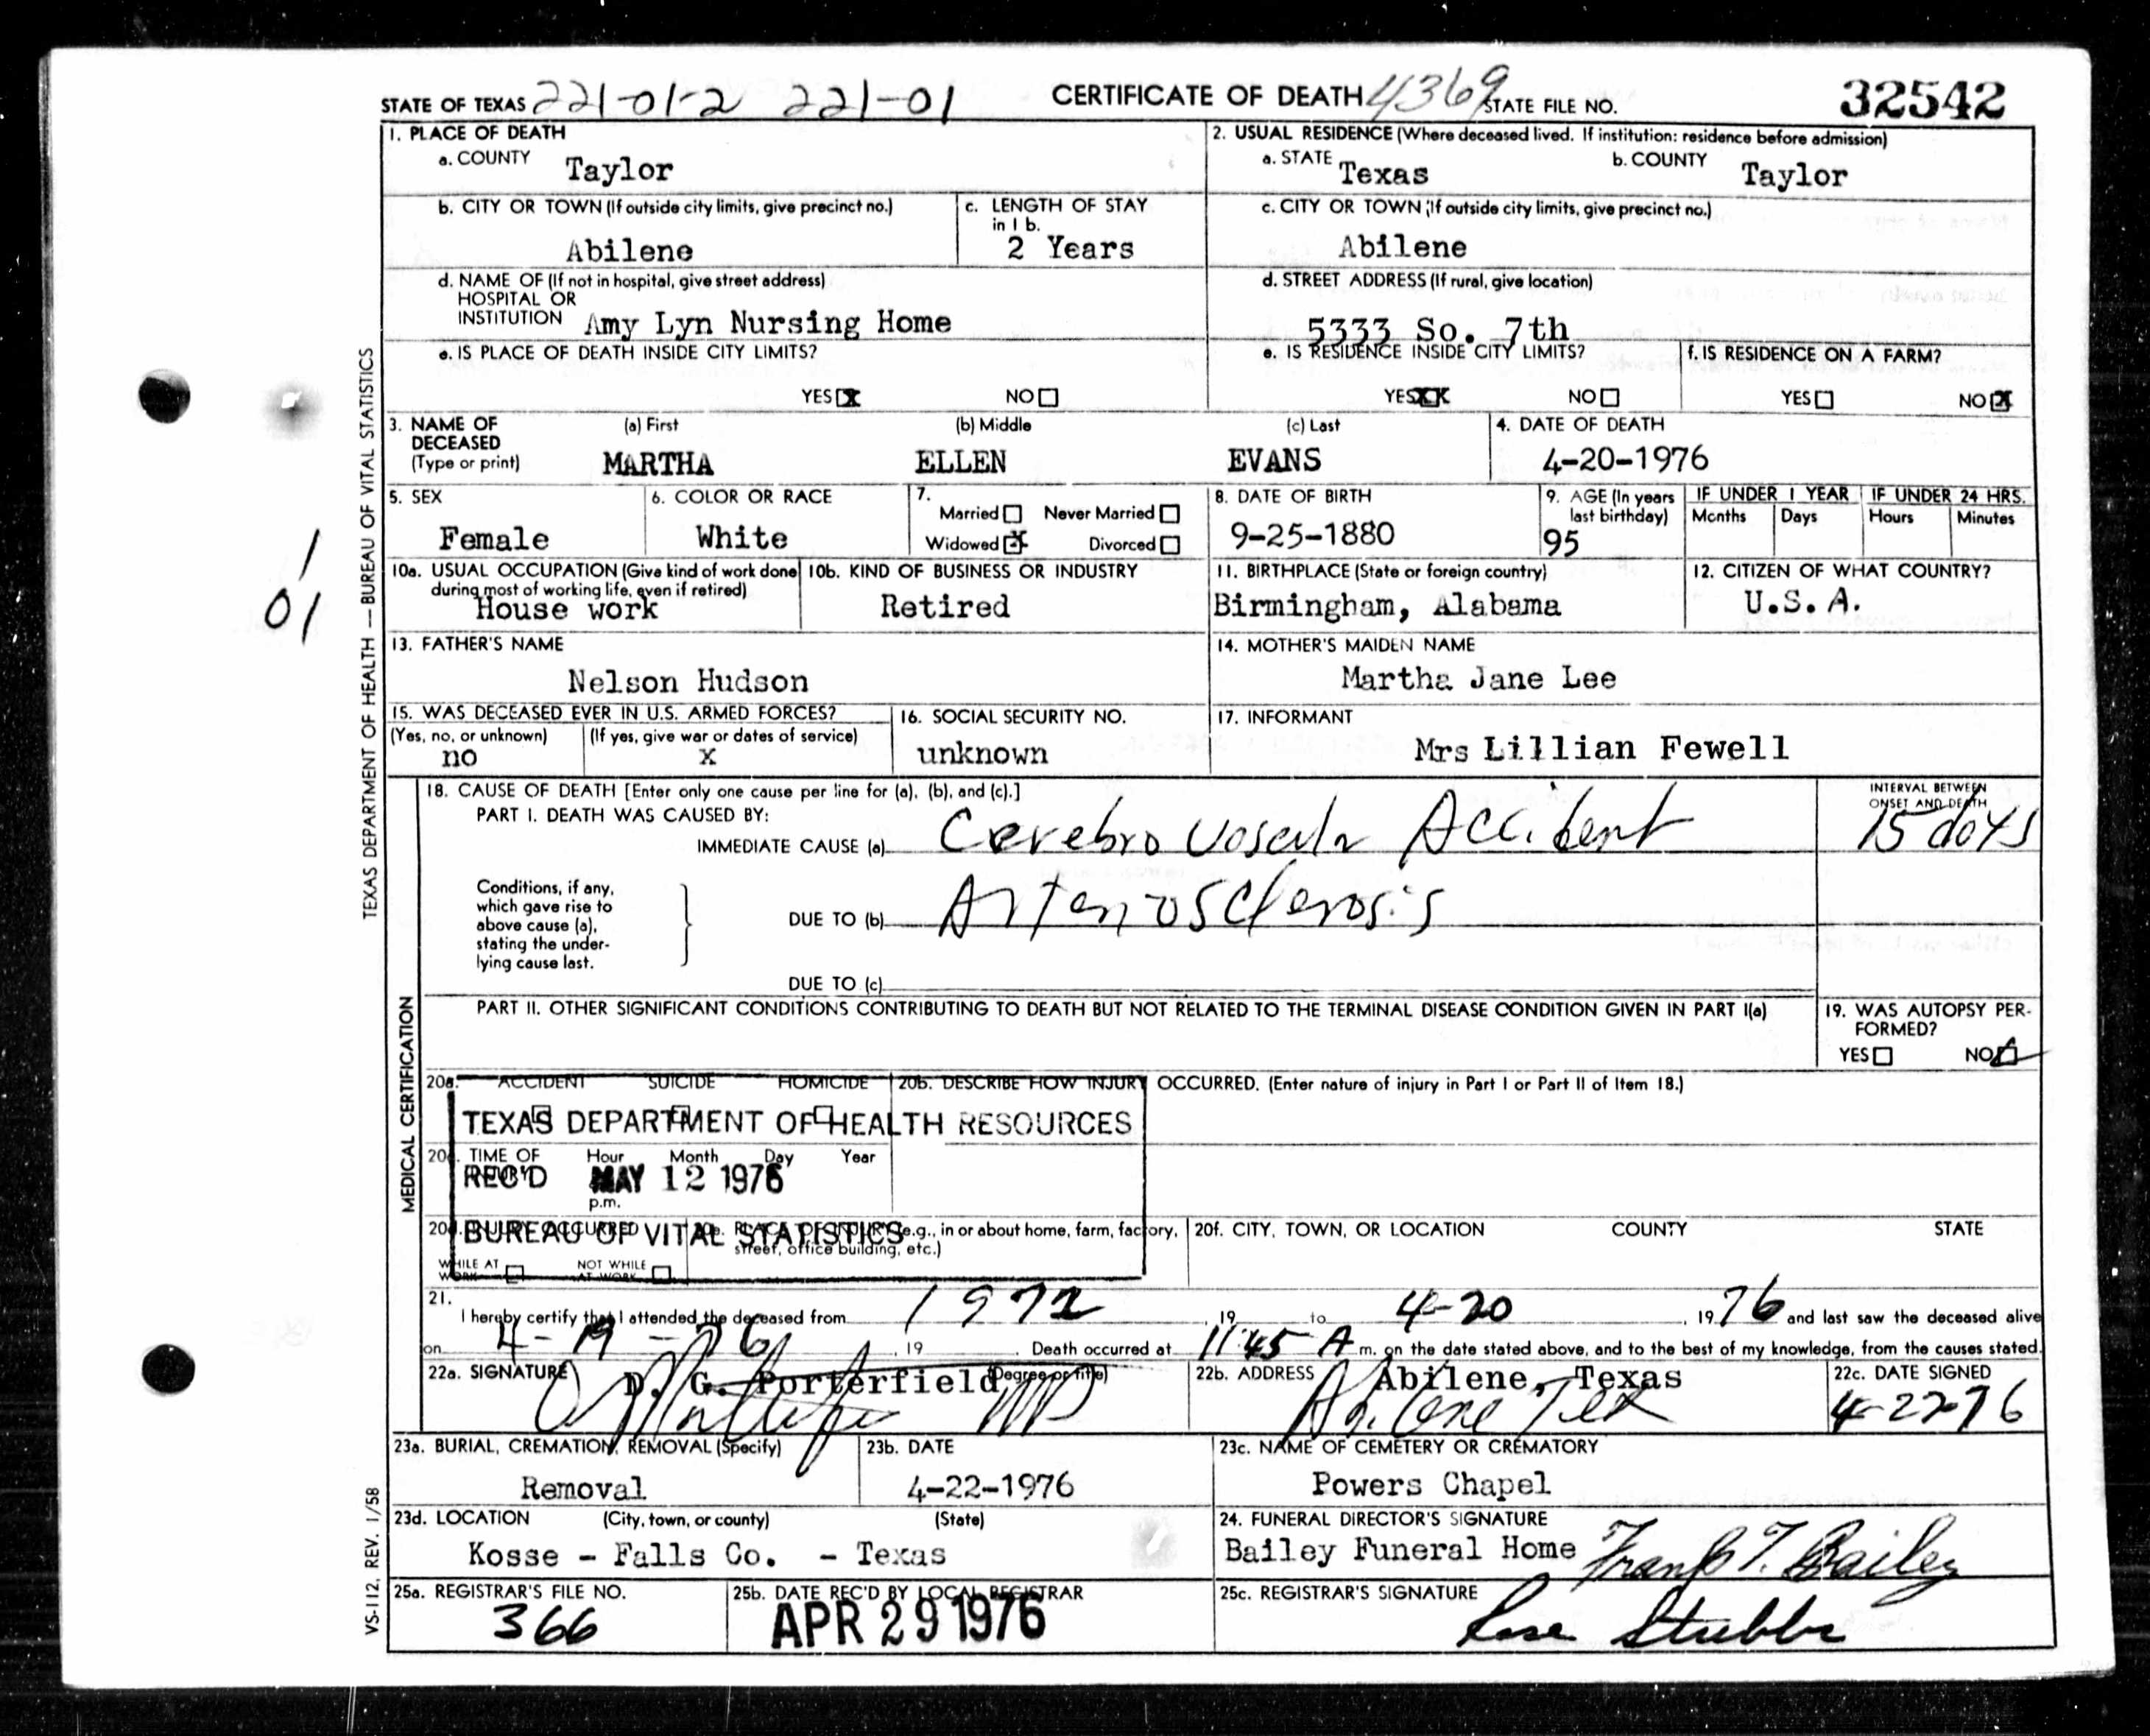 STATE OF TEXAS 221-01-2 221-01 CERTIFICATE OF DEATH 4369 STATE FILE NO. 32542
1. PLACE OF DEATH
a. COUNTY Taylor
2. USUAL RESIDENCE (Where deceased lived. If institution: residence before admission)
a. STATE Texas b. COUNTY Taylor
b. CITY OR TOWN (If outside city limits, give precinct no.)
Abilene
c. LENGTH OF STAY
in 1 b.
2 Years
c. CITY OR TOWN (If outside city limits, give precinct no.)
Abilene
d. NAME OF (If not in hospital, give street address)
HOSPITAL OR
INSTITUTION Amy Lyn Nursing Home
d. STREET ADDRESS (If rural, give location)
5333 So. 7th
e. IS PLACE OF DEATH INSIDE CITY LIMITS?
YES X NO
e. IS RESIDENCE INSIDE CITY LIMITS?
YES XX NO
f. IS RESIDENCE ON A FARM?
YES NO X
3. NAME OF DECEASED
(Type or print)
(a) First (b) Middle (c) Last
MARTHA ELLEN EVANS
4. DATE OF DEATH
4-20-1976
5. SEX
Female
6. COLOR OR RACE
White
7.
Married Never Married
Widowed X Divorced
8. DATE OF BIRTH
9-25-1880
9. AGE (In years
last birthday)
95
IF UNDER 1 YEAR IF UNDER 24 HRS.
Months Days Hours Minutes
10a. USUAL OCCUPATION (Give kind of work done
during most of working life, even if retired)
House work
10b. KIND OF BUSINESS OR INDUSTRY
Retired
11. BIRTHPLACE (State or foreign country)
Birmingham, Alabama
12. CITIZEN OF WHAT COUNTRY?
U.S.A.
13. FATHER'S NAME
Nelson Hudson
14. MOTHER'S MAIDEN NAME
Martha Jane Lee
15. WAS DECEASED EVER IN U.S. ARMED FORCES?
(Yes, no, or unknown) (If yes, give war or dates of service)
no x
16. SOCIAL SECURITY NO.
unknown
17. INFORMANT
Mrs Lillian Fewell
18. CAUSE OF DEATH [Enter only one cause per line for (a), (b), and (c).]
PART I. DEATH WAS CAUSED BY:
IMMEDIATE CAUSE (a) Cerebro Vascular Accident
INTERVAL BETWEEN
ONSET AND DEATH
15 days
Conditions, if any,
which gave rise to
above cause (a),
stating the under-
lying cause last.
DUE TO (b) Arteriosclerosis
DUE TO (c)
PART II. OTHER SIGNIFICANT CONDITIONS CONTRIBUTING TO DEATH BUT NOT RELATED TO THE TERMINAL DISEASE CONDITION GIVEN IN PART I(a)
19. WAS AUTOPSY PER-
FORMED?
YES NO
20a. ACCIDENT SUICIDE HOMICIDE
20b. DESCRIBE HOW INJURY OCCURRED. (Enter nature of injury in Part I or Part II of Item 18.)
TEXAS DEPARTMENT OF HEALTH RESOURCES
TIME OF Hour Month Day Year
REC'D MAY 12 1976
p.m.
BUREAU OF VITAL STATISTICS
OCCURRED
e.g., in or about home, farm, factory,
street, office building, etc.)
WHILE AT WORK NOT WHILE AT WORK
20f. CITY, TOWN, OR LOCATION COUNTY STATE
21.
I hereby certify that I attended the deceased from 1972, 19 to 4-20, 1976 and last saw the deceased alive
on 4-19-76, 19 . Death occurred at 11:45 A m. on the date stated above, and to the best of my knowledge, from the causes stated.
22a. SIGNATURE (Degree or title)
D. G. Porterfield
MD
22b. ADDRESS
Abilene, Texas
Abilene Tex
22c. DATE SIGNED
4-22-76
23a. BURIAL, CREMATION, REMOVAL (Specify)
Removal
23b. DATE
4-22-1976
23c. NAME OF CEMETERY OR CREMATORY
Powers Chapel
23d. LOCATION (City, town, or county) (State)
Kosse - Falls Co. - Texas
24. FUNERAL DIRECTOR'S SIGNATURE
Bailey Funeral Home Frank T. Bailey
25a. REGISTRAR'S FILE NO.
366
25b. DATE REC'D BY LOCAL REGISTRAR
APR 29 1976
25c. REGISTRAR'S SIGNATURE
Rose Stubbs
TEXAS DEPARTMENT OF HEALTH — BUREAU OF VITAL STATISTICS
MEDICAL CERTIFICATION
VS-112, REV. 1/58
1
01